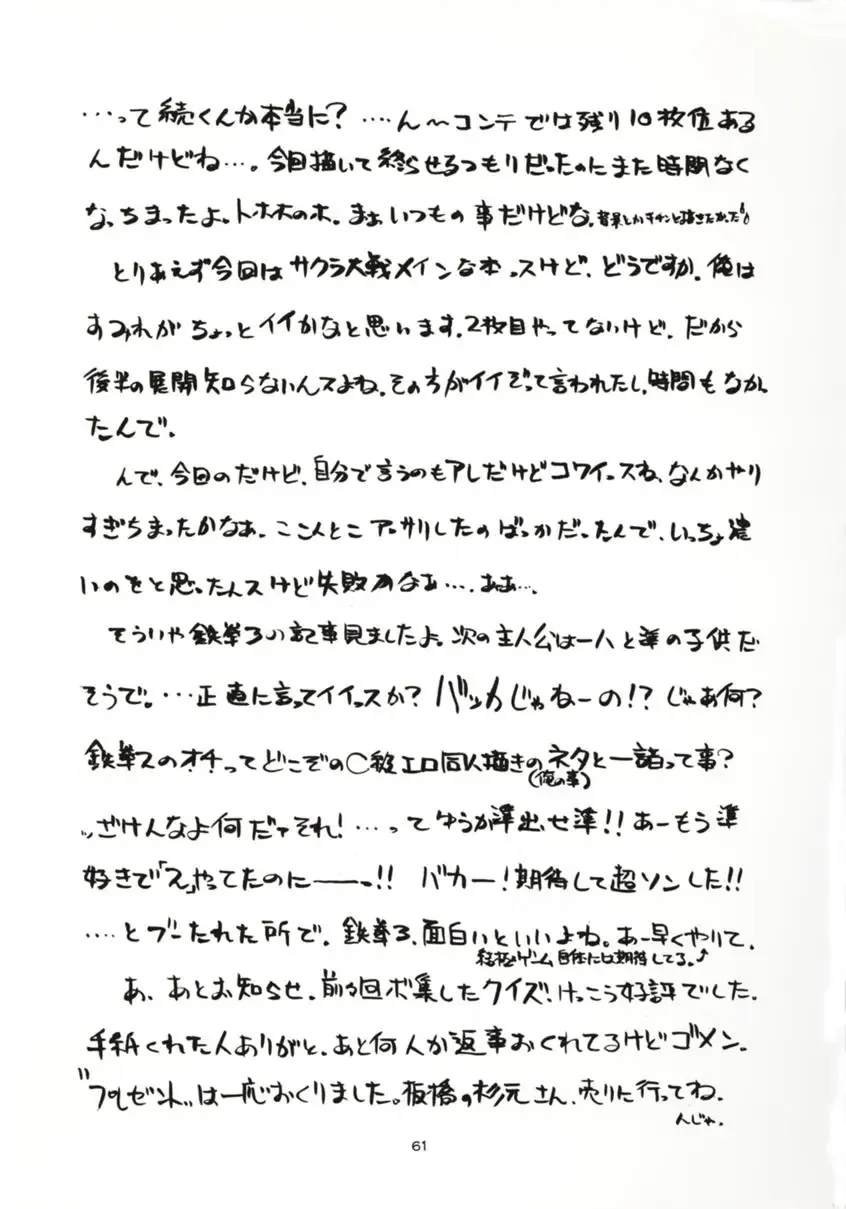 …って続くんか本当に？……ん〜コンテでは残り10枚位ある
んだけどね…。今回描いて終らせるつもりだったのにまた時間なく
なっちまったよ。トホホのホ。まぁいつもの事だけどな。背景とかチャンと描きたかった
とりあえず今回はサクラ大戦メインな本っスけど、どうですか。俺は
すみれがちょっとイイかなと思います。2枚目やってないけど、だから
後半の展開知らないんスよね。その方がイイぞって言われたし、時間もなかっ
たんで。
んで、今回のだけど、自分で言うのもアレだけどコワイっスね、なんかやり
すぎちまったかなぁ。ここんとこアッサリしたのばっかだったんで、いっちょ濃
いのをと思ったんスけど失敗かなぁ…。ああ…。
そういや鉄拳3の記事見ましたよ。次の主人公は一八と準の子供だ
そうで。…正直に言ってイイっスか？バッカじゃねーの!?じゃあ何？
鉄拳2のオチってどこぞの○穀エロ同人描きのネタと一諸って事？
(俺の事)
ッざけんなよ何だァそれ！…ってゆうか準出せ準!!あーもう準
好きで「2」やってたのにーーっ!!バカー！期待して超ソンした!!
……とブーたれた所で。鉄拳3、面白いといいよね。あー早くやりて。
結極ゲーム自体には期待してる。↑
あ、あとお知らせ。前々回ボ集したクイズ、けっこう好評でした。
手紙くれた人ありがと、あと何人か返事おくれてるけどゴメン。
"プレゼント"は一応おくりました。板橋の杉元さん、売りに行ってね。
んじゃ。
61